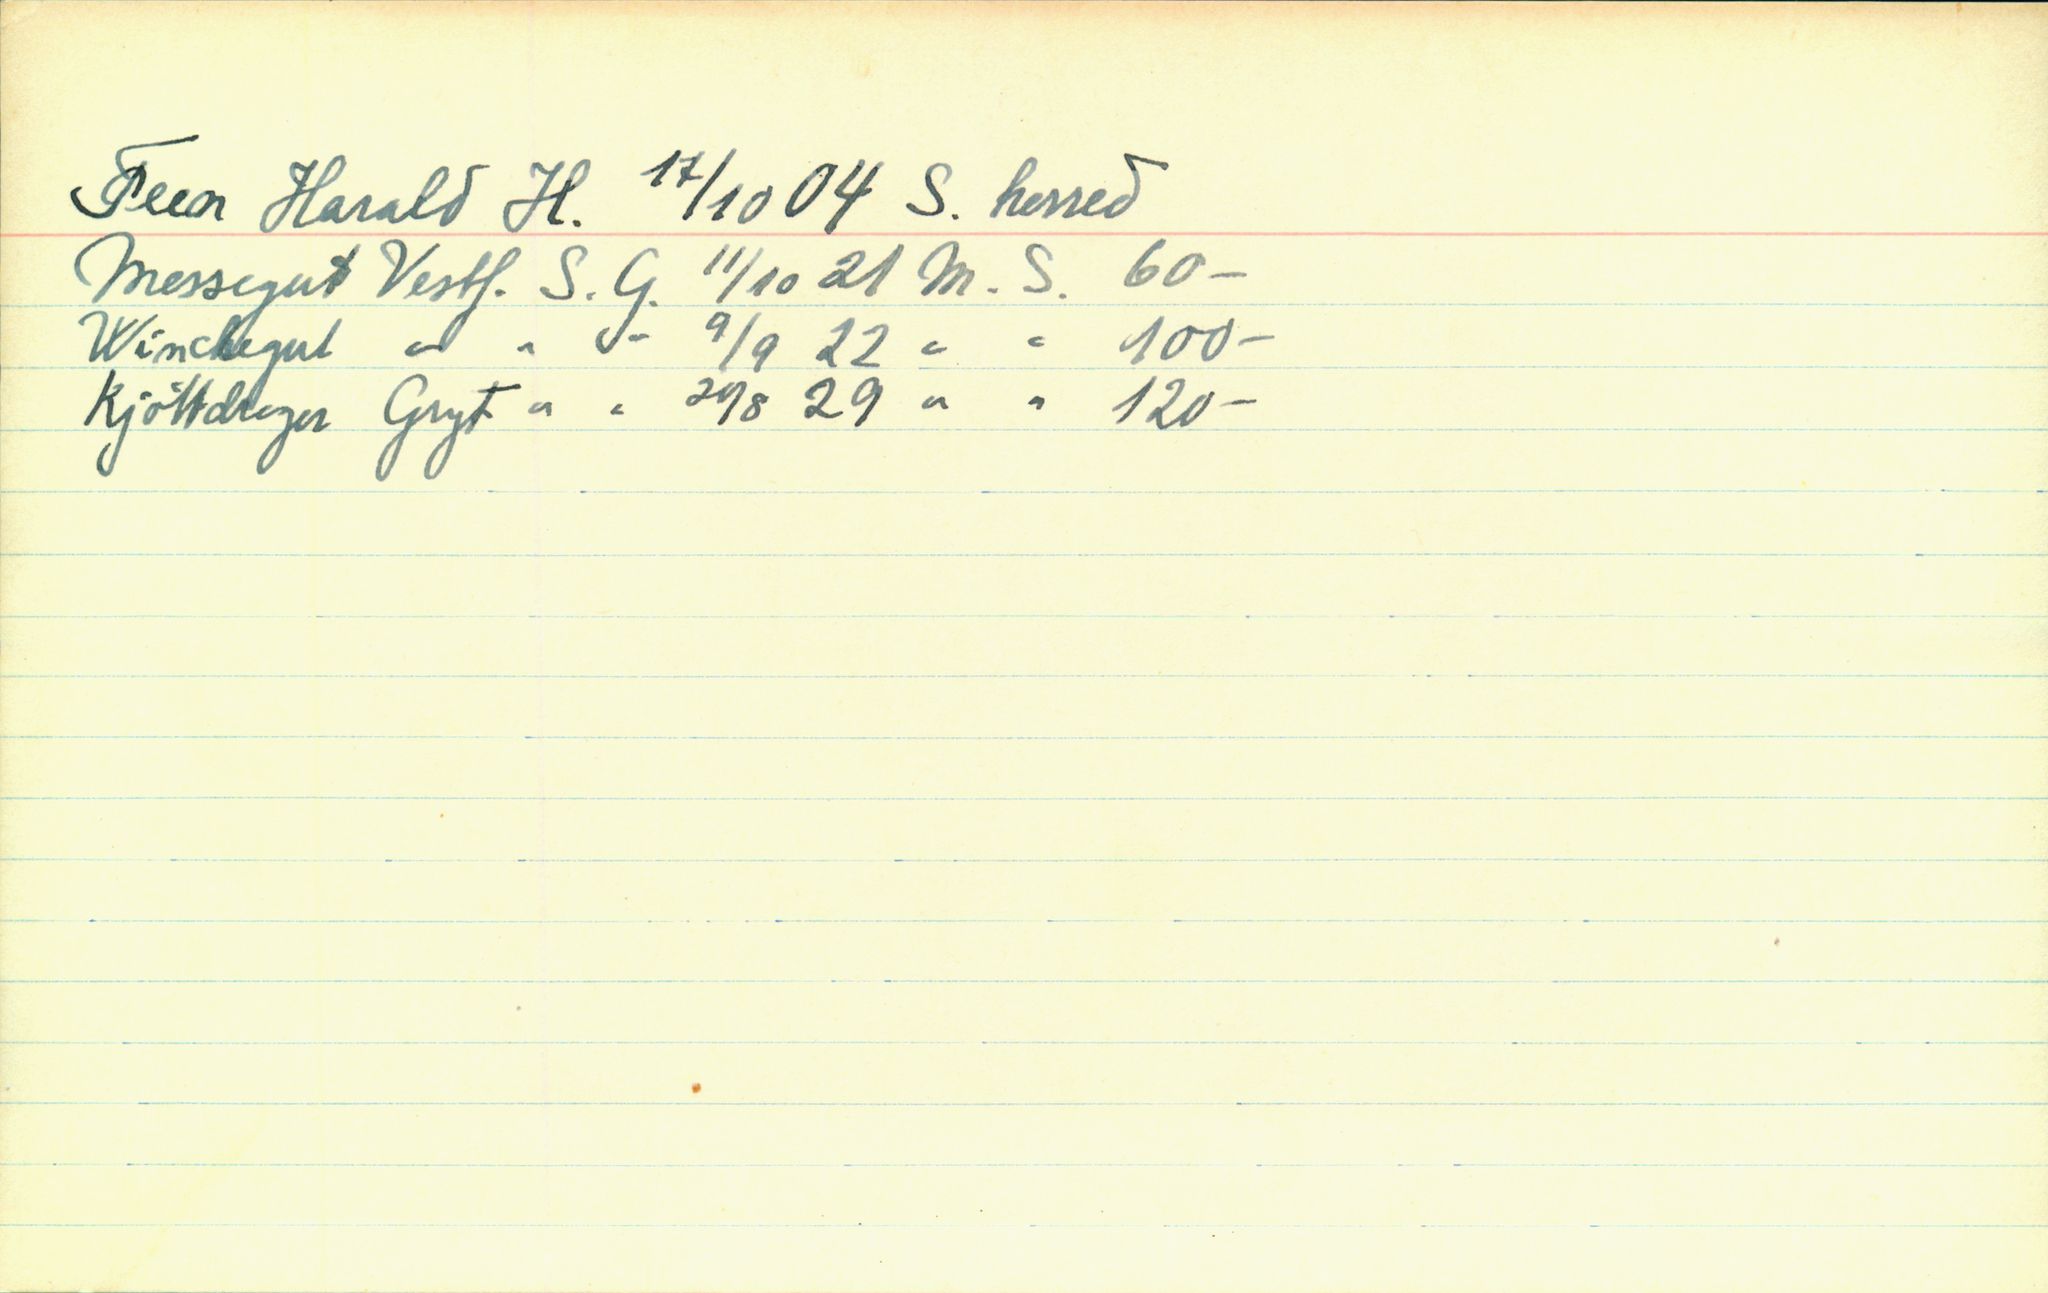 Feen Harald H. 17/10 04 S. herred
Messegut Vestf. S. G. 11/10 21 M. S. 60-
Winchegut " " " 9/9 22 " " 100-
Kjöttdreger Gryt " " 29/8 29 " " 120-